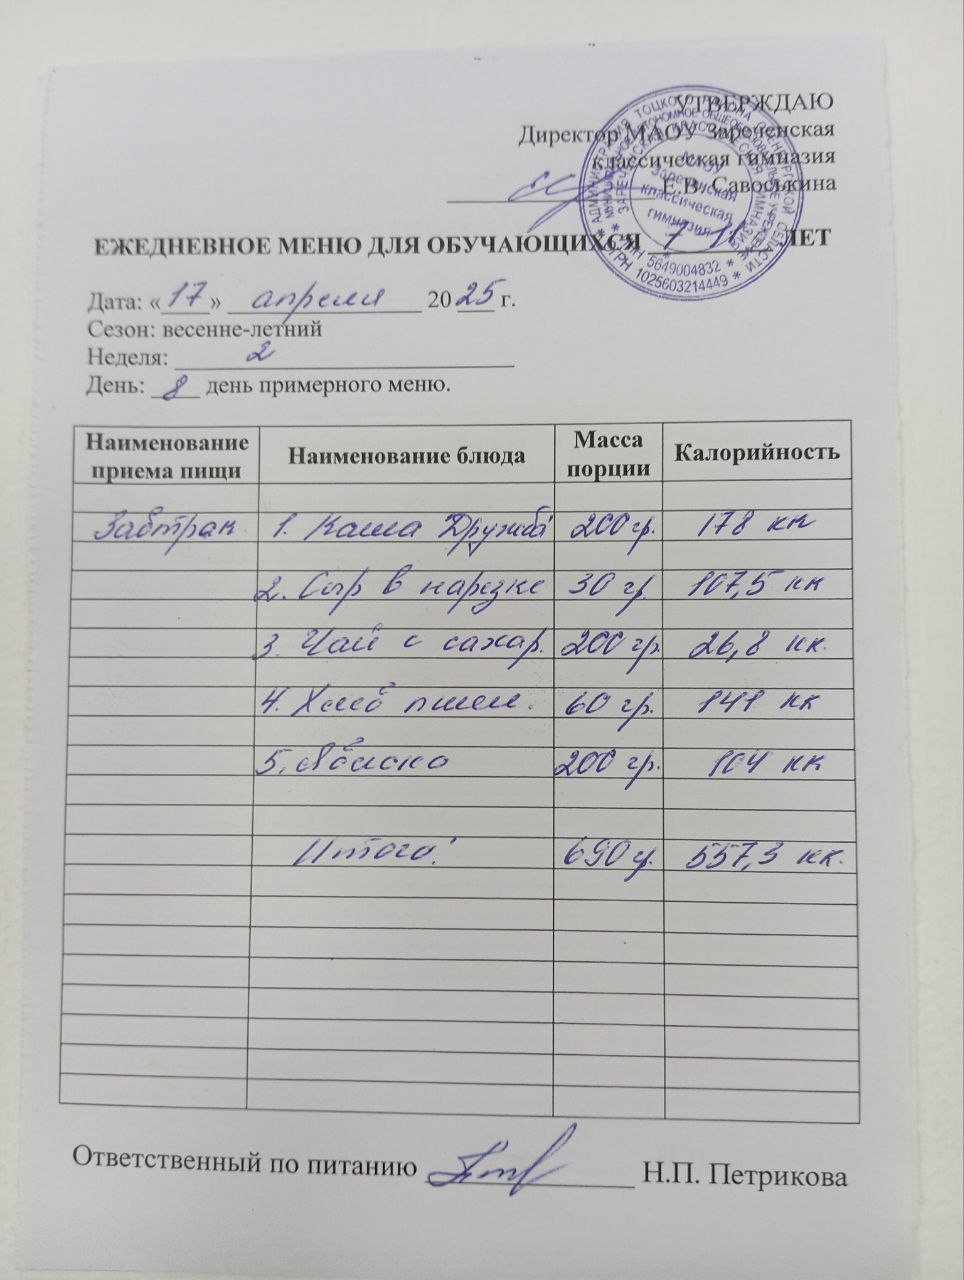 УТВЕРЖДАЮ
Директор МАОУ Зареченская
классическая гимназия
Е.В. Савоськина
ЕЖЕДНЕВНОЕ МЕНЮ ДЛЯ ОБУЧАЮЩИХСЯ 7-11 ЛЕТ
Дата: «17» апреля 2025 г.
Сезон: весенне-летний
Неделя: 2
День: 8 день примерного меню.
Наименование приема пищи Наименование блюда Масса порции Калорийность
Завтрак 1. Каша Дружба 200 гр. 178 кк
2. Сыр в нарезке 30 гр. 107,5 кк
3. Чай с сахар. 200 гр. 26,8 кк.
4. Хлеб пшен. 60 гр. 141 кк
5. Яблоко 200 гр. 104 кк
Итого: 690 г. 557,3 кк.
Ответственный по питанию Н.П. Петрикова
АДМИНИСТРАЦИЯ ТОЦКОГО РАЙОНА ОРЕНБУРГСКОЙ ОБЛАСТИ
ОГРН 1025603214449
ИНН 5649004832
МАОУ
Зареченская
классическая
гимназия